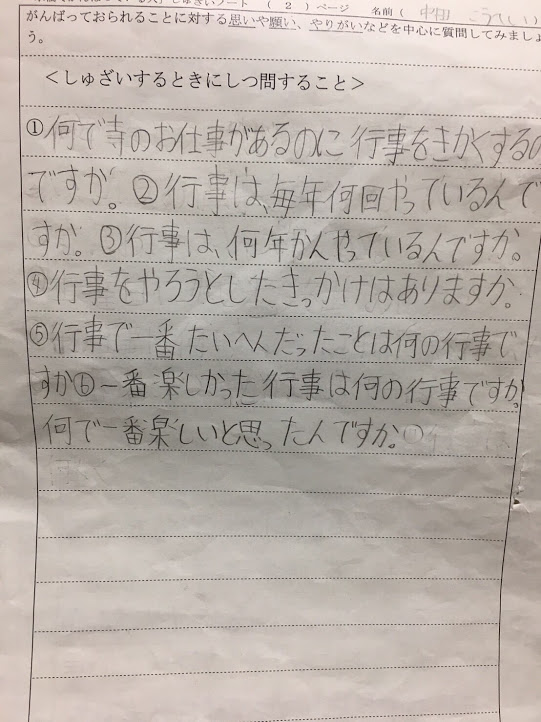 しゅざいノート （ 2 ）ページ 名前（ 中田
がんばっておられることに対する思いや願い、やりがいなどを中心に質問してみましょ
う。
＜しゅざいするときにしつ問すること＞
①何で寺のお仕事があるのに行事をきかくするの
ですか。②行事は、毎年何回やっているんで
すか。③行事は、何年かんやっているんですか。
④行事をやろうとしたきっかけはありますか。
⑤行事で一番たいへんだったことは何の行事で
すか⑥一番楽しかった行事は何の行事ですか。
何で一番楽しいと思ったんですか。